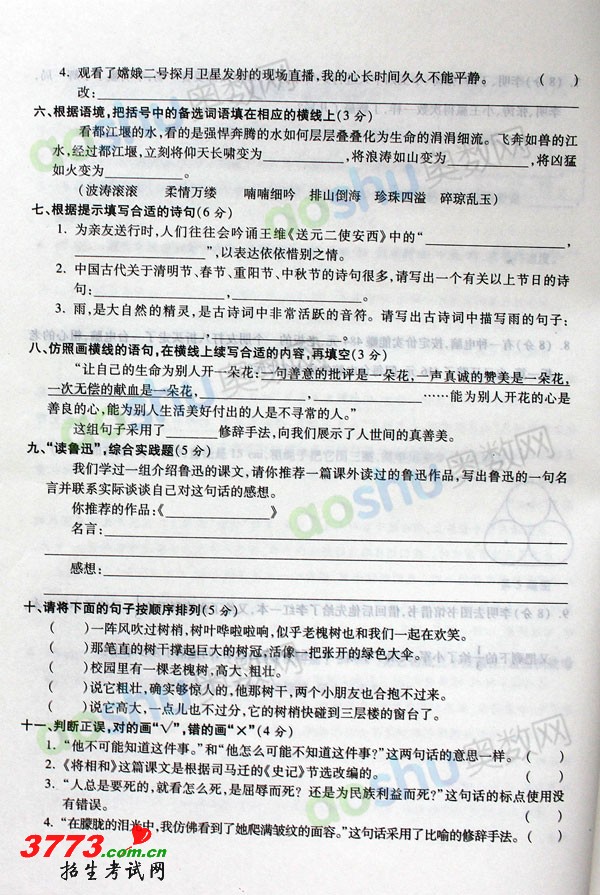 4. 观看了嫦娥二号探月卫星发射的现场直播,我的心长时间久久不能平静。 ( )
改:
六、根据语境,把括号中的备选词语填在相应的横线上(3 分)
看都江堰的水,看的是强悍奔腾的水如何层层叠叠化为生命的涓涓细流。飞奔如兽的江
水,经过都江堰,立刻将仰天长啸变为____________,将浪涛如山变为____________,将凶猛
如火变为____________。
(波涛滚滚 柔情万缕 喃喃细吟 排山倒海 珍珠四溢 碎琼乱玉)
七、根据提示填写合适的诗句(6 分)
1. 为亲友送行时,人们往往会吟诵王维《送元二使安西》中的“____________,
____________”,以表达依依惜别之情。
2. 中国古代关于清明节、春节、重阳节、中秋节的诗句很多,请写出一个有关以上节日的诗
句:____________,____________。
3. 雨,是大自然的精灵,是古诗词中非常活跃的音符。请写出古诗词中描写雨的句子:
____________,____________。
八、仿照画横线的语句,在横线上续写合适的内容,再填空(3 分)
“让自己的生命为别人开一朵花:一句善意的批评是一朵花,一声真诚的赞美是一朵花,
一次无偿的献血是一朵花,____________,____________……能为别人开花的心是
善良的心,能为别人生活美好付出的人是不寻常的人。”
这组句子采用了________修辞手法,向我们展示了人世间的真善美。
九、“读鲁迅”,综合实践题(5 分)
我们学过一组介绍鲁迅的课文,请你推荐一篇课外读过的鲁迅作品,写出鲁迅的一句名
言并联系实际谈谈自己对这句话的感想。
你推荐的作品:《 》
名言:
感想:
十、请将下面的句子按顺序排列(5 分)
( )一阵风吹过树梢,树叶哗啦啦响,似乎老槐树也和我们一起在欢笑。
( )那笔直的树干撑起巨大的树冠,活像一把张开的绿色大伞。
( )校园里有一棵老槐树,高大、粗壮。
( )说它粗壮,确实够惊人的,他那树干,两个小朋友也合抱不过来。
( )说它高大,一点儿也不过分,它的树梢快碰到三层楼的窗台了。
十一、判断正误,对的画“√”,错的画“×”(4 分)
1. “他不可能知道这件事。”和“他怎么可能不知道这件事?”这两句话的意思一样。 ( )
2. 《将相和》这篇课文是根据司马迁的《史记》节选改编的。 ( )
3. “人总是要死的,就看怎么死,是屈辱而死? 还是为民族利益而死?”这句话的标点使用没
有错误。 ( )
4. “在朦胧的泪光中,我仿佛看到了她爬满皱纹的面容。”这句话采用了比喻的修辞手法。( )
3773.com.cn
招生考试网
aoshu奥数网